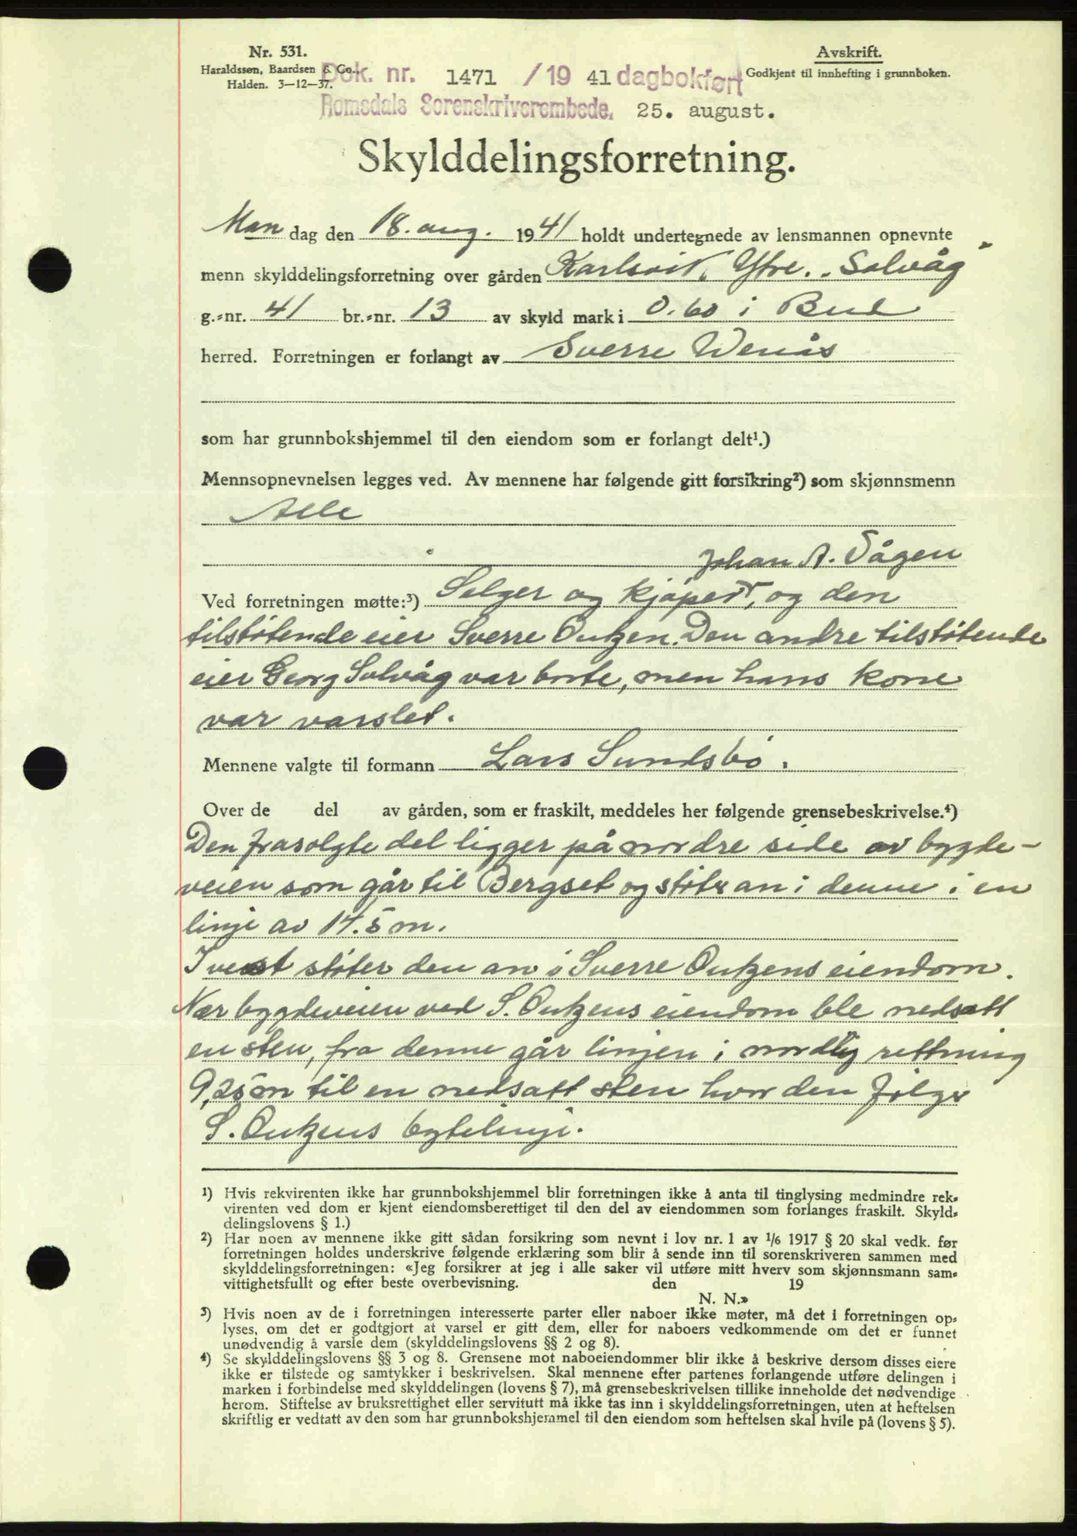 Nr. 531.
Haraldssen, Baardsen & Co.
Halden. 3—12—37.
Avskrift.
Godkjent til innhefting i grunnboken.
Dok. nr. 1471 /19 41 dagbokført
Romsdals Sorenskriverembede, 25. august.
Skylddelingsforretning.
Man dag den 18. aug. 1941 holdt undertegnede av lensmannen opnevnte
menn skylddelingsforretning over gården Karlsvik, Ytre. „Solvåg"
g.-nr. 41 br.-nr. 13 av skyld mark i 0.60 i Bud
herred. Forretningen er forlangt av Sverre Wenås
som har grunnbokshjemmel til den eiendom som er forlangt delt¹.)
Mennsopnevnelsen legges ved. Av mennene har følgende gitt forsikring²) som skjønnsmenn
Alle
Johan A. Vågen
Ved forretningen møtte:³) Selger og kjøper, og den
tilstøtende eier Sverre Outzen. Den andre tilstøtende
eier Georg Solvåg var borte, men hans kone
var varslet.
Mennene valgte til formann Lars Sundsbø.
Over de del av gården, som er fraskilt, meddeles her følgende grensebeskrivelse.⁴)
Den frasolgte del ligger på nordre side av bygde-
veien som går til Bergset og støter an i denne i en
linje av 14.5 m.
I vest støter den an i Sverre Outzens eiendom.
Nær bygdeveien ved S. Outzens eiendom ble nedsatt
en sten, fra denne går linjen i nordlig rettning
9,25 m til en nedsatt sten hvor den følger
S. Outzens bytelinje.
¹) Hvis rekvirenten ikke har grunnbokshjemmel blir forretningen ikke å anta til tinglysing medmindre rek-
virenten ved dom er kjent eiendomsberettiget til den del av eiendommen som forlanges fraskilt. Skyld-
delingslovens § 1.)
²) Har noen av mennene ikke gitt sådan forsikring som nevnt i lov nr. 1 av 1/6 1917 § 20 skal vedk. før
forretningen holdes underskrive følgende erklæring som blir å sende inn til sorenskriveren sammen med
skylddelingsforretningen: «Jeg forsikrer at jeg i alle saker vil utføre mitt hverv som skjønnsmann sam-
vittighetsfullt og efter beste overbevisning. den 19
N. N.»
³) Hvis noen av de i forretningen interesserte parter eller naboer ikke møter, må det i forretningen op-
lyses, om det er godtgjort at varsel er gitt dem, eller for naboers vedkommende om det er funnet
unødvendig å varsle dem (skylddelingslovens §§ 2 og 8).
⁴) Se skylddelingslovens §§ 3 og 8. Grensene mot naboeiendommer blir ikke å beskrive dersom disses eiere
ikke er tilstede og samtykker i beskrivelsen. Skal mennene efter partenes forlangende utføre delingen i
marken i forbindelse med skylddelingen (lovens § 7), må grensebeskrivelsen tillike inneholde det nødvendige
herom. Stiftelse av bruksrettighet eller servitutt må ikke tas inn i skylddelingsforretningen, uten at heftelsen
skriftlig er vedtatt av den som har grunnbokshjemmel til den eiendom som heftelsen skal hvile på (lovens § 5).